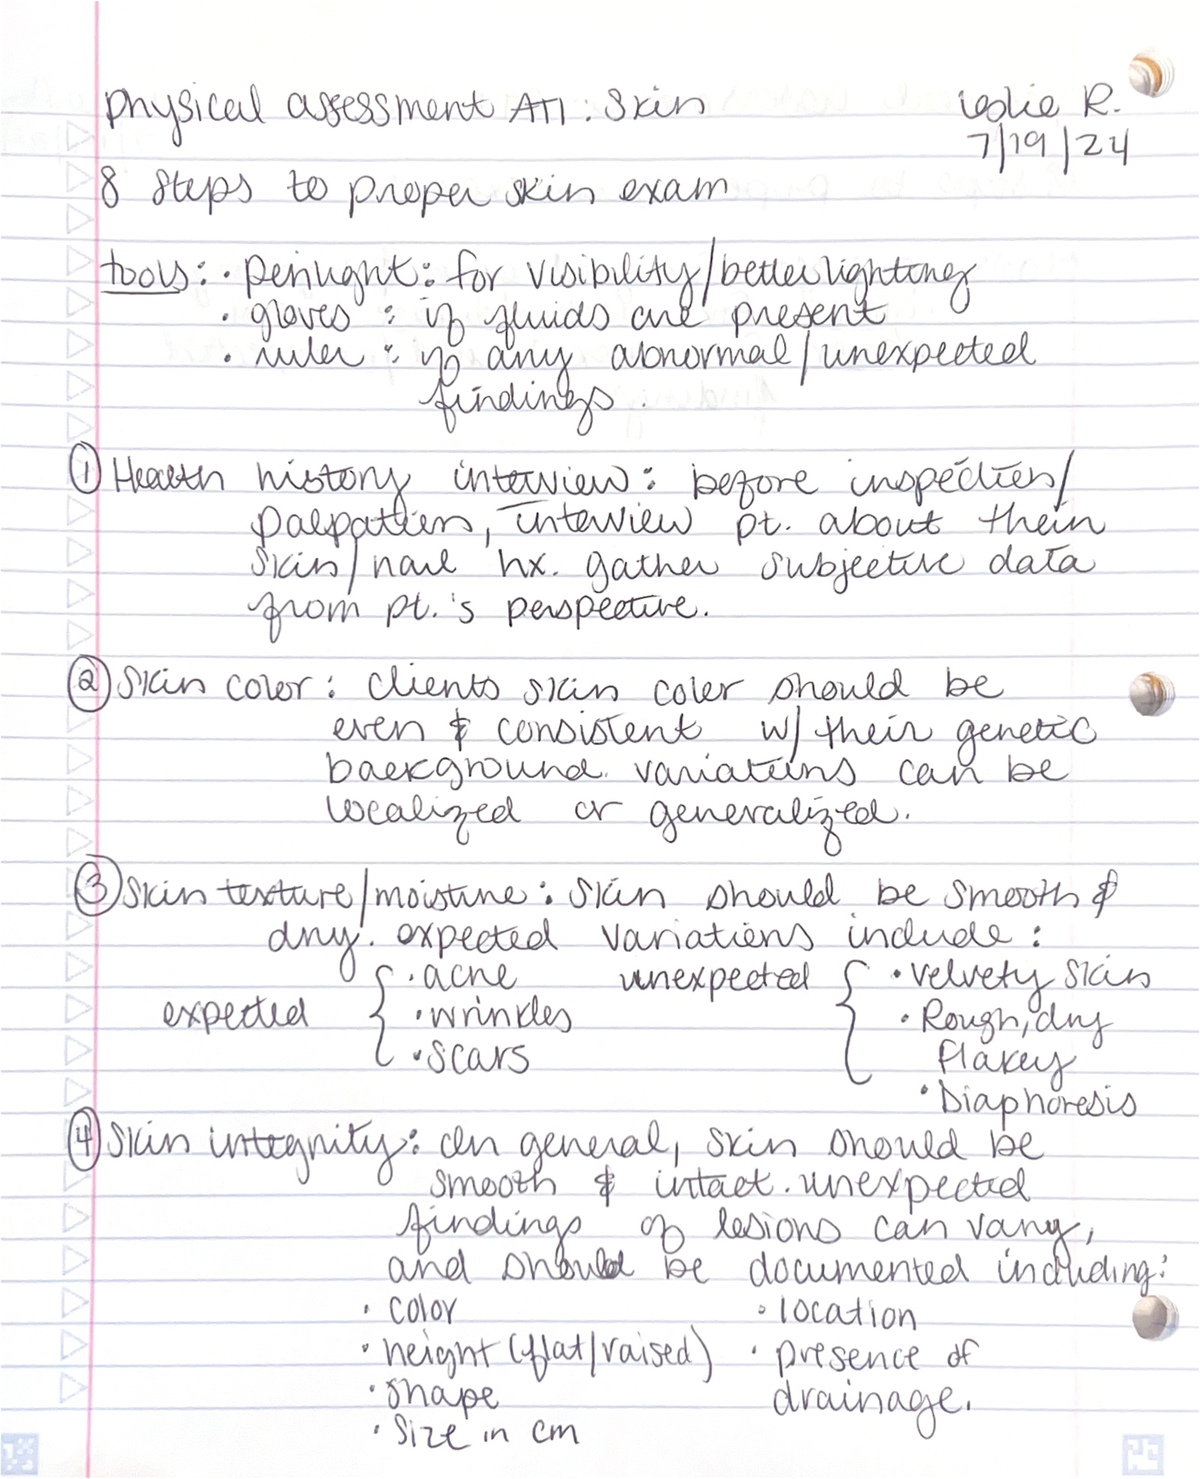 physical assessment ATI: Skin
Leslie R.
7/19/24
8 steps to proper skin exam
tools: • penlight: for visibility/better lighting
• gloves: if fluids are present
• ruler: if any abnormal/unexpected
findings.
① Health history interview: before inspection/
palpation, interview pt. about their
skin/nail hx. gather subjective data
from pt.'s perspective.
② Skin color: clients skin color should be
even & consistent w/ their genetic
background. variations can be
localized or generalized.
③ Skin texture/moisture: skin should be smooth &
dry. expected variations include:
expected { • acne
• wrinkles
• scars
unexpected { • velvety skin
• Rough, dry
flakey
• Diaphoresis
④ Skin integrity: In general, skin should be
smooth & intact. unexpected
findings of lesions can vary,
and should be documented including:
• color
• height (flat/raised)
• shape
• size in cm
• location
• presence of
drainage.